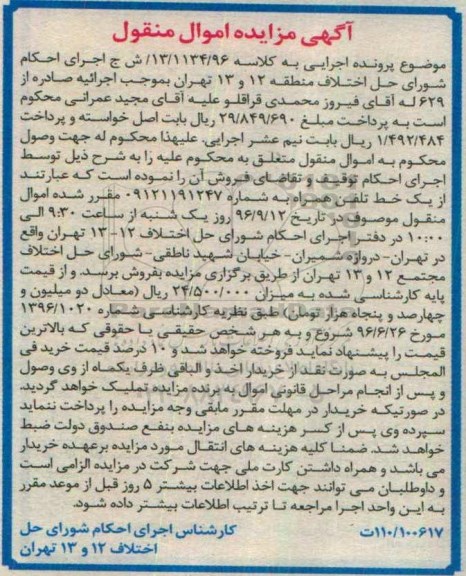 آگهی مزایده اموال منقول
موضوع پرونده اجرایی به کلاسه ۱۳/۱۱۳۴/۹۶/ ش ح اجرای احکام
شورای حل اختلاف منطقه ۱۲ و ۱۳ تهران بموجب اجرائیه صادره از
۶۲۹ له آقای فیروز محمدی قراقلو علیه آقای مجید عمرانی محکوم
است به پرداخت مبلغ ۲۹/۸۴۹/۶۹۰ ریال بابت اصل خواسته و پرداخت
۱/۴۹۲/۴۸۴ ریال بابت نیم عشر اجرایی. علیهذا محکوم له جهت وصول
محکوم به اموال منقول متعلق به محکوم علیه را به شرح ذیل توسط
اجرای احکام توقیف و تقاضای فروش آن را نموده است که عبارتند
از یک خط تلفن همراه به شماره ۰۹۱۲۱۱۹۱۲۴۷ مقرر شده اموال
منقول موصوف در تاریخ ۹۶/۹/۱۲ روز یک شنبه از ساعت ۹:۳۰ الی
۱۰:۰۰ در دفتر اجرای احکام شورای حل اختلاف ۱۲-۱۳ تهران واقع
در تهران- دروازه شمیران- خیابان شهید ناطقی- شورای حل اختلاف
مجتمع ۱۲ و ۱۳ تهران از طریق برگزاری مزایده بفروش برسد. و از قیمت
پایه کارشناسی شده به میزان ۲۴/۵۰۰/۰۰۰ ریال (معادل دو میلیون و
چهارصد و پنجاه هزار تومان) طبق نظریه کارشناسی شماره ۱۳۹۶/۱۰۲۰
مورخ ۹۶/۶/۲۶ شروع و به هر شخص حقیقی یا حقوقی که بالاترین
قیمت را پیشنهاد نماید فروخته خواهد شد و ۱۰ درصد قیمت خرید فی
المجلس به صورت نقد از خریدار اخذ و الباقی ظرف یکماه از وی وصول
و پس از انجام مراحل قانونی اموال به برنده مزایده تملیک خواهد گردید.
در صورتیکه خریدار در مهلت مقرر مابقی وجه مزایده را پرداخت ننماید
سپرده وی پس از کسر هزینه های مزایده بنفع صندوق دولت ضبط
خواهد شد. ضمنا کلیه هزینه های انتقال مورد مزایده برعهده خریدار
می باشد و همراه داشتن کارت ملی جهت شرکت در مزایده الزامی است
و داوطلبان می توانند جهت اخذ اطلاعات بیشتر ۵ روز قبل از موعد مقرر
به این واحد اجرا مراجعه تا ترتیب اطلاعات بیشتر داده شود.
۱۱۰/۱۰۰۶۱۷ت
کارشناس اجرای احکام شورای حل
اختلاف ۱۲ و ۱۳ تهران